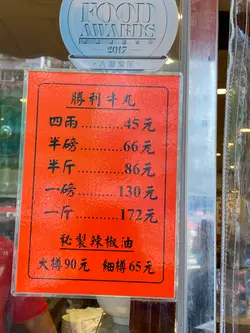 FOOD
AWARDS
2017
勝利牛丸
四兩........45元
半磅........66元
半斤........86元
一磅........130元
一斤........172元
秘製辣椒油
大樽90元 細樽65元